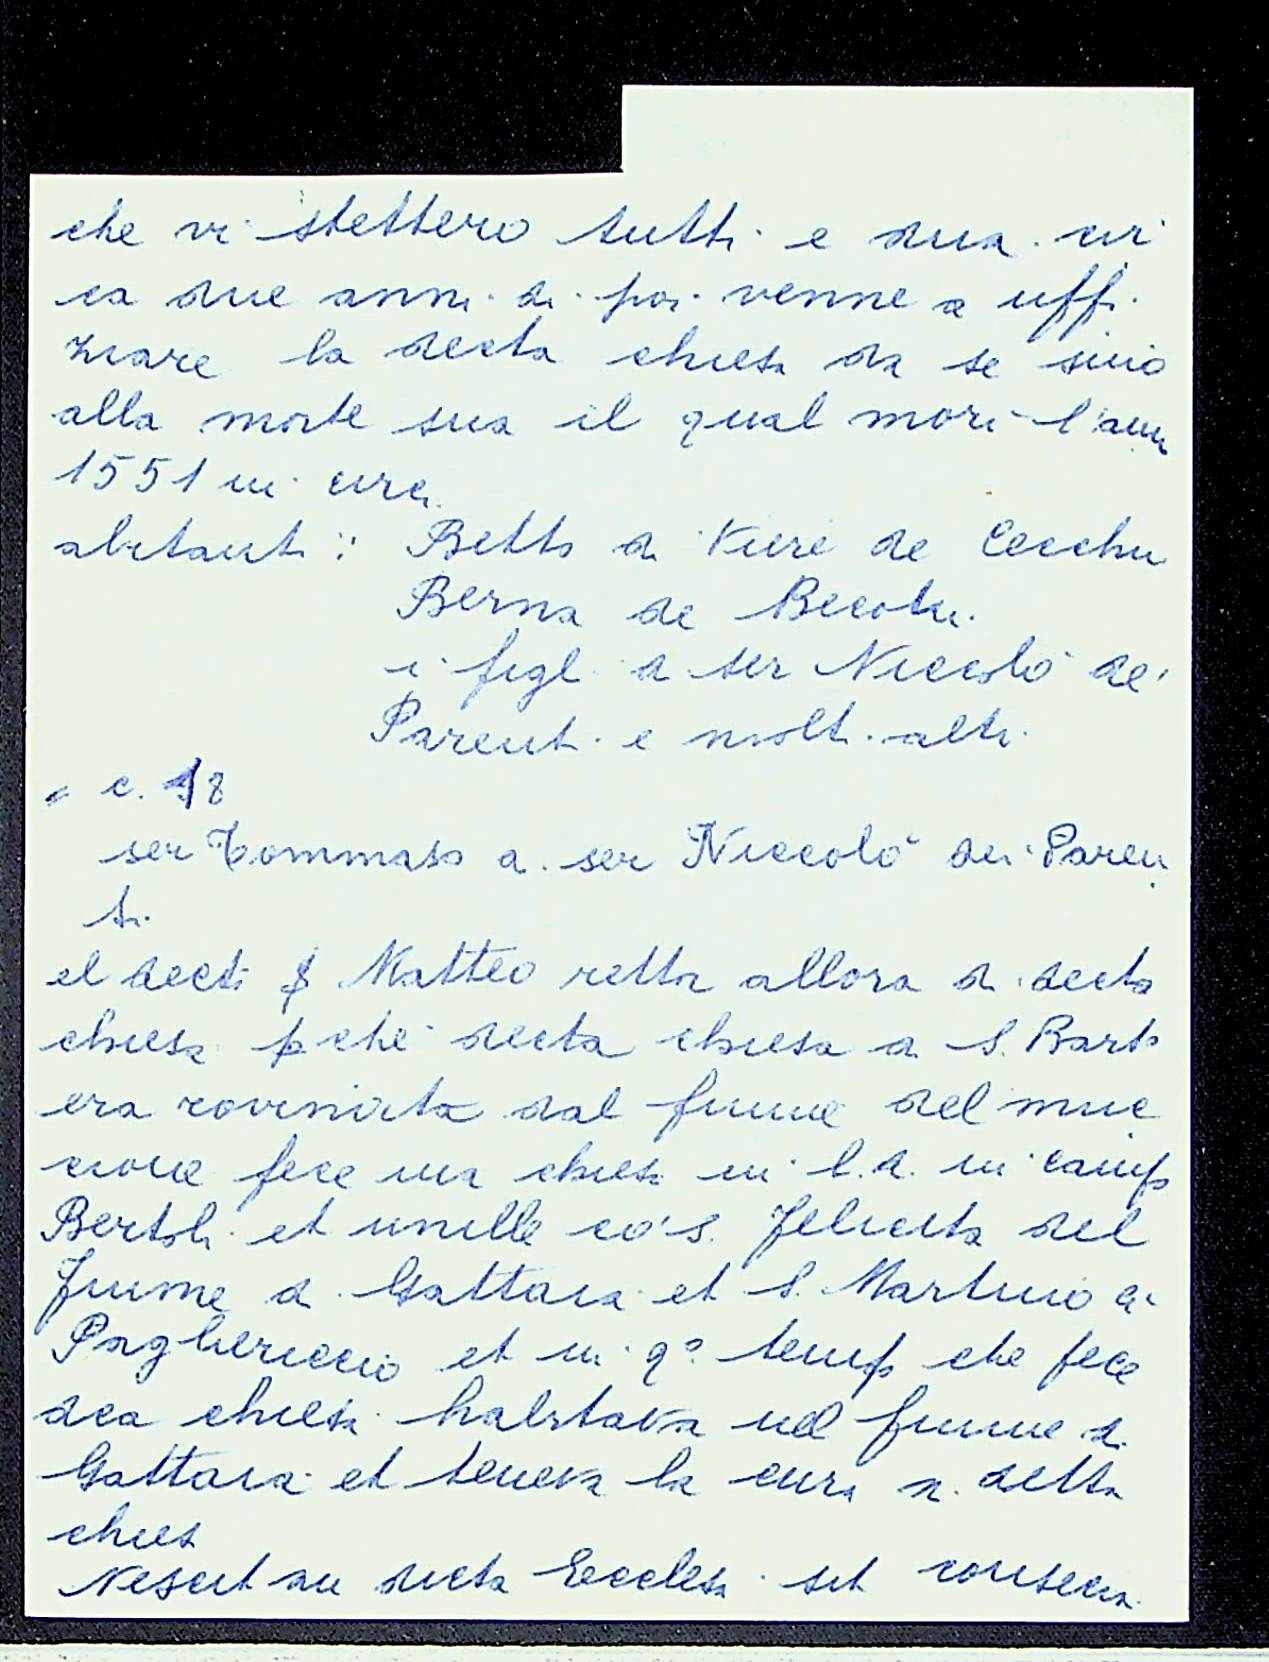 che vi stettero tutti e dua. cir
ca due anni di poi venne a uffi
ziare la decta chiesa da se sino
alla morte sua il qual morì l'ann
1551 in circa
abitanti: Betto di Viere de Cecchu
Berna de
i figl di ser Niccolò de'
Parenti e molti altri
" c. 18
ser Tommaso di ser Niccolò dei Paren
ti
el decti Matteo rettr allora di decto
chiesa pchè decta chiesa di S. Barto
era rovinata dal fiume del muc
cione fece una chiesa in l.d. in campo
Bertoli et unille cò S. Felicita del
fiume di Gattaia et S. Martino a
Pagliericcio et in qº tempo che fece
dca chiesa habitava nel fiume di
Gattaia et teneva la cura di detta
chies
Nesciut an dicta Ecclesia sit consecra